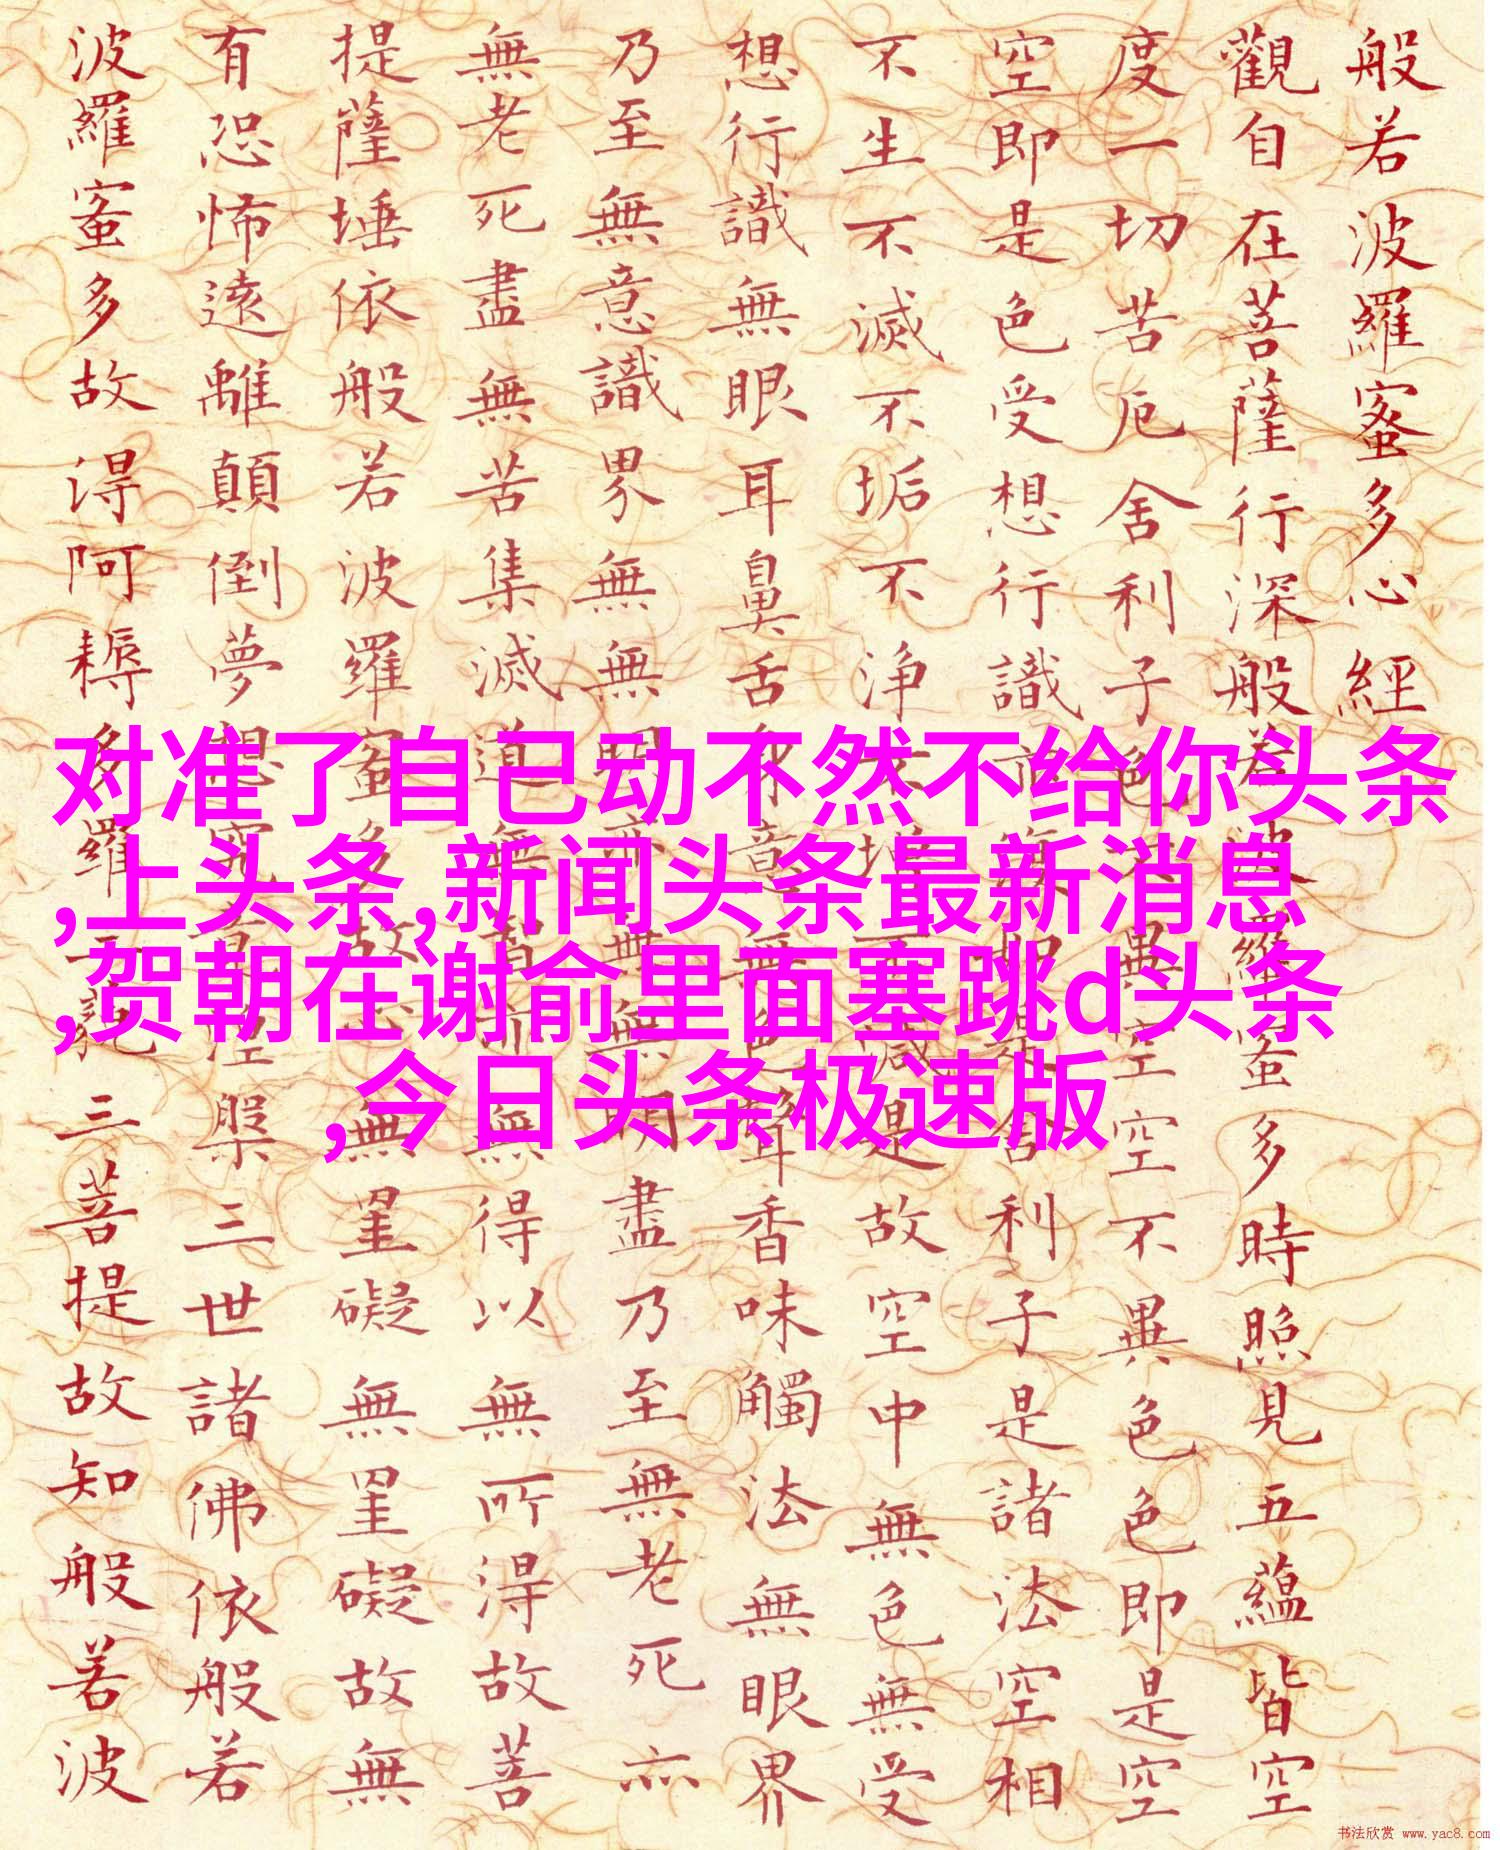 般若波羅蜜多心經
觀自在菩薩行深般若波羅蜜多時照見五蘊皆空
度一切苦厄舍利子色不異空空不異色色即是空
空即是色受想行識亦復如是舍利子是諸法空相
不生不滅不垢不淨不增不減是故空中無色無受
想行識無眼耳鼻舌身意無色聲香味觸法無眼界
乃至無意識界無無明亦無無明盡乃至無老死亦
無老死盡無苦集滅道無智亦無得以無所得故菩
提薩埵依般若波羅蜜多故心無罣礙無罣礙故無
有恐怖遠離顛倒夢想究竟涅槃三世諸佛依般若
波羅蜜多故得阿耨多羅三藐三菩提故知般若波
对准了自己动不然不给你头条
,上头条,新闻头条最新消息
,贺朝在谢俞里面塞跳d头条
,今日头条极速版
书法欣赏 www.yac8.com